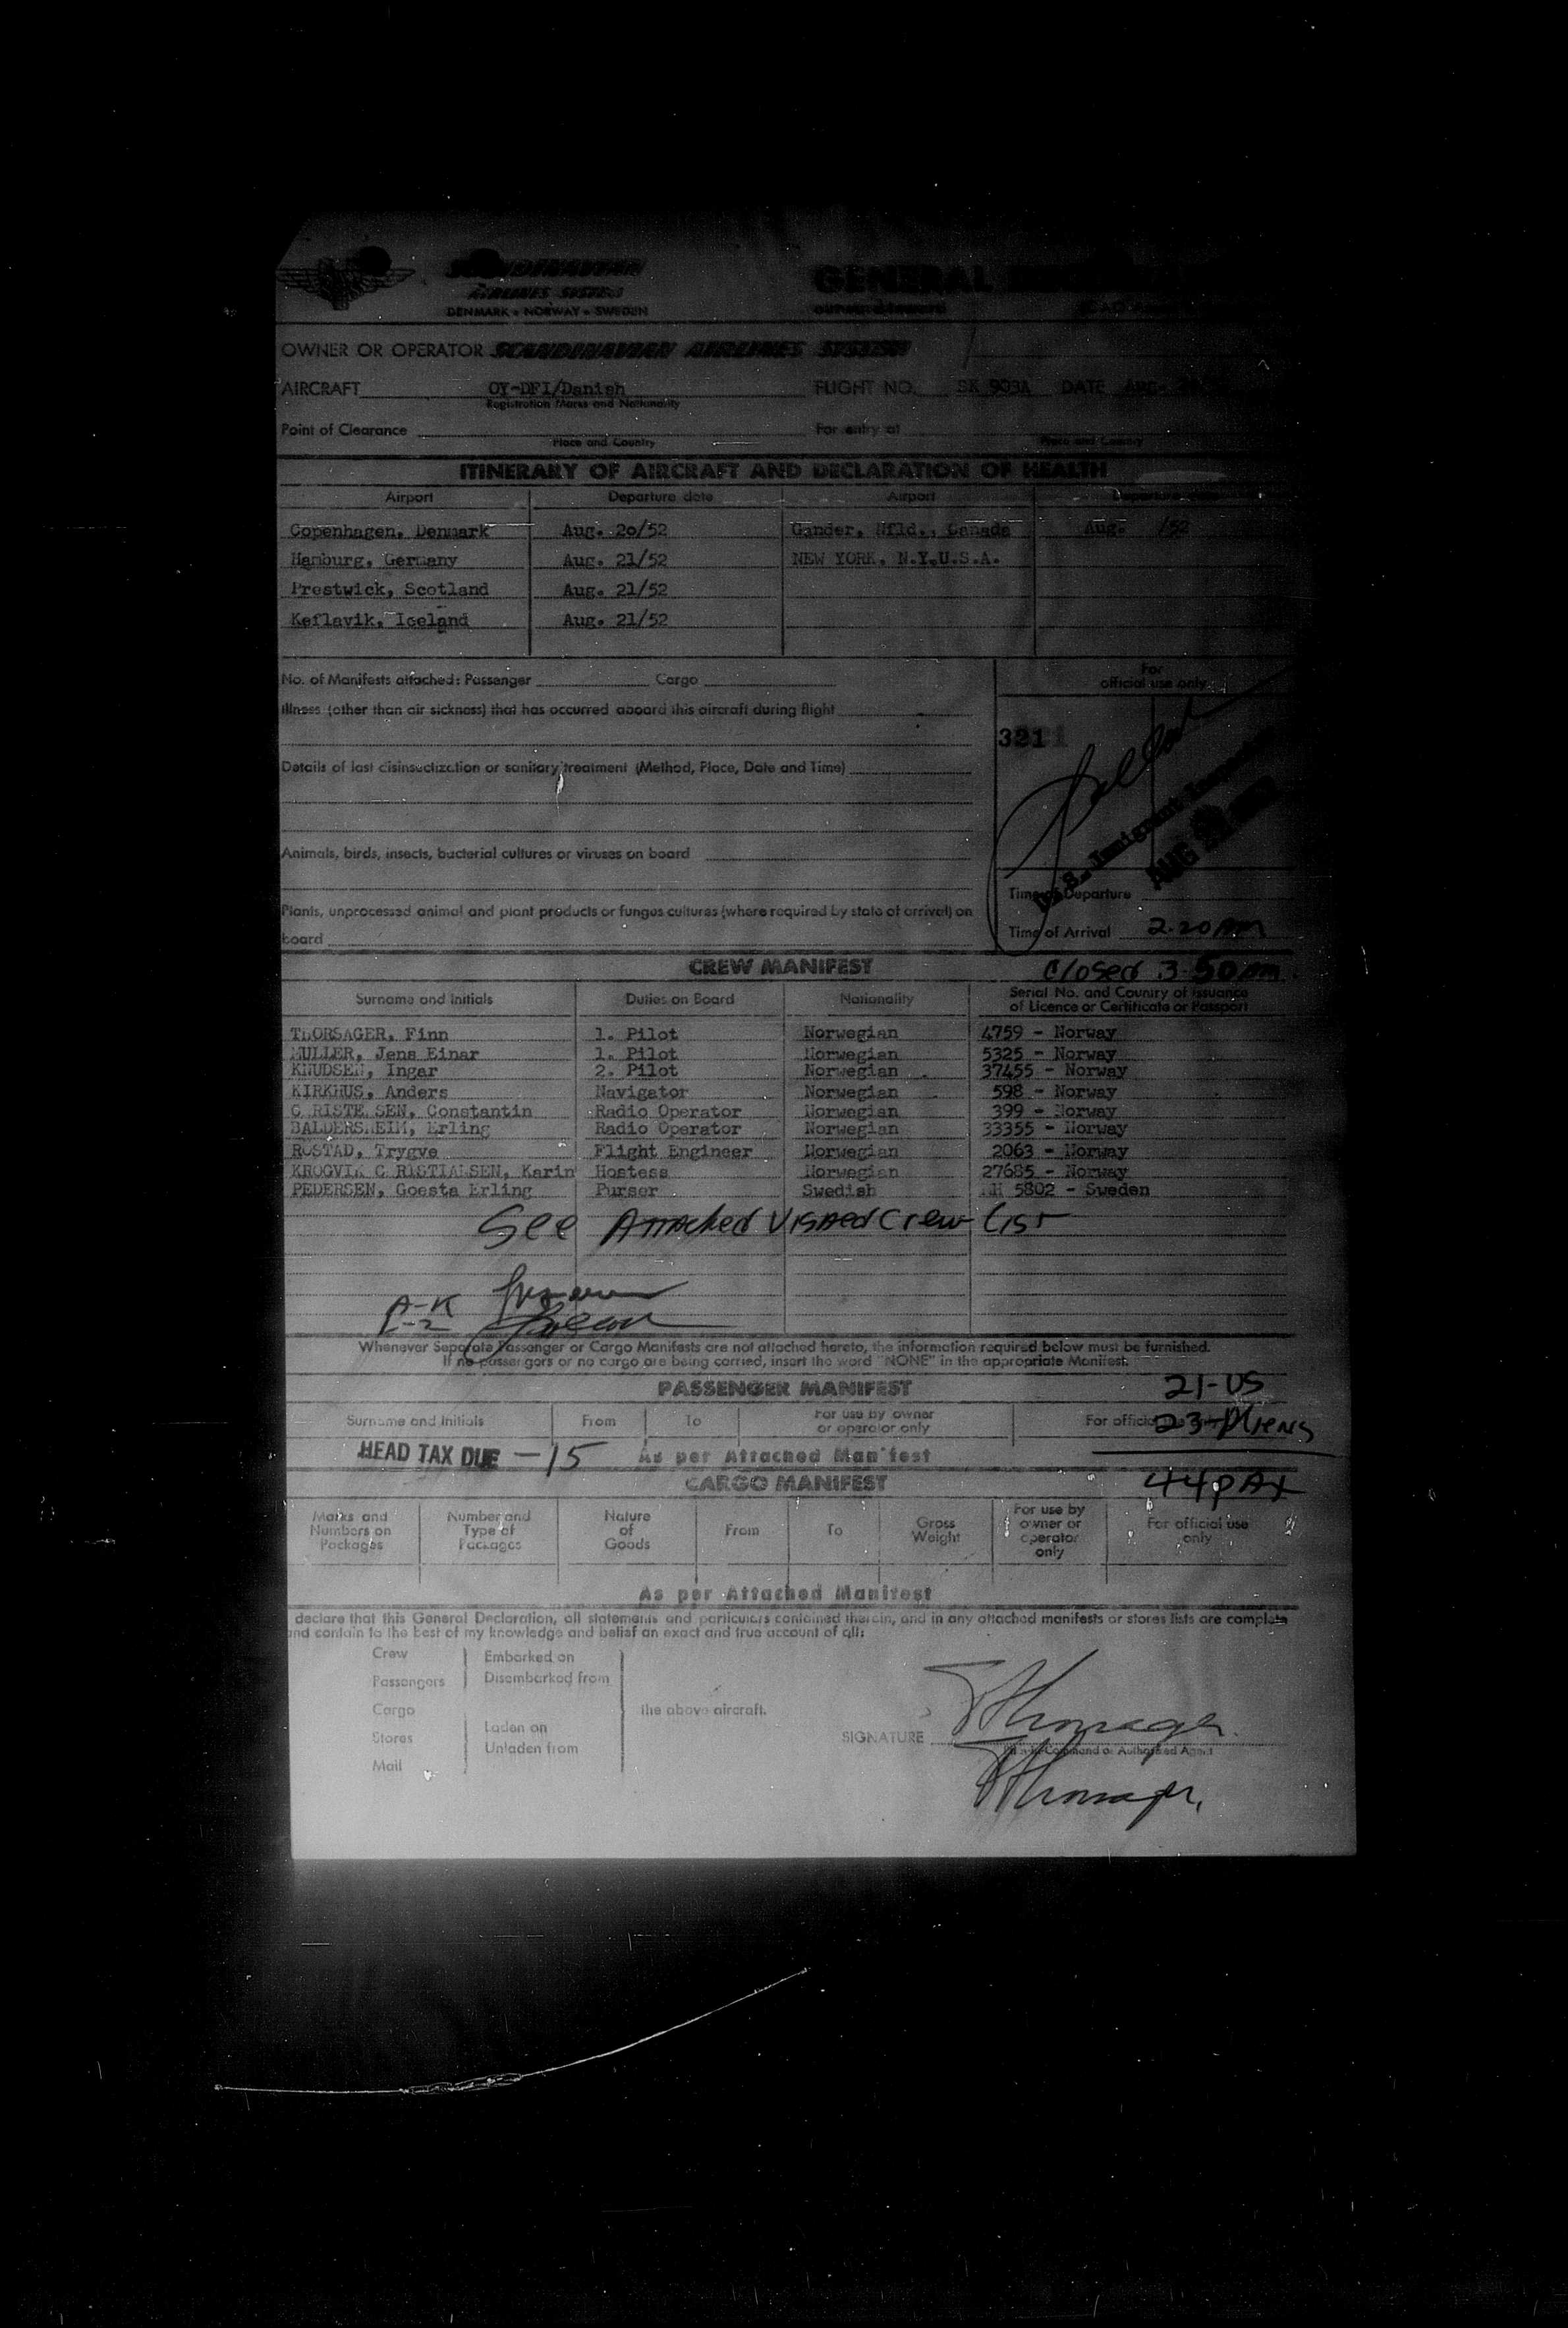 SCANDINAVIAN
AIRLINES SYSTEM
DENMARK • NORWAY • SWEDEN
GENERAL
OWNER OR OPERATOR SCANDINAVIAN AIRLINES SYSTEM
AIRCRAFT OY-DFI/Danish FLIGHT NO. SK 903A DATE
Registration Marks and Nationality
Point of Clearance For entry at
Place and Country Place and Country
ITINERARY OF AIRCRAFT AND DECLARATION OF HEALTH
Airport Departure date Airport Departure date
Copenhagen, Denmark Aug. 20/52 Gander, Nfld., Canada Aug. /52
Hamburg, Germany Aug. 21/52 NEW YORK, N.Y.U.S.A.
Prestwick, Scotland Aug. 21/52
Keflavik, Iceland Aug. 21/52
No. of Manifests attached: Passenger Cargo
For
official use only
Illness (other than air sickness) that has occurred aboard this aircraft during flight
321
Details of last disinsectization or sanitary treatment (Method, Place, Date and Time)
U.S. Immigrant Inspector
AUG
Animals, birds, insects, bacterial cultures or viruses on board
Time of Departure
Plants, unprocessed animal and plant products or fungus cultures (where required by state of arrival) on
board
Time of Arrival 2.20 pm
CREW MANIFEST
Closed 3.50 pm
Surname and Initials Duties on Board Nationality Serial No. and Country of Issuance
of Licence or Certificate or Passport
THORSAGER, Finn 1. Pilot Norwegian 4759 - Norway
MULLER, Jens Einar 1. Pilot Norwegian 5325 - Norway
KNUDSEN, Ingar 2. Pilot Norwegian 37455 - Norway
KIRKHUS, Anders Navigator Norwegian 598 - Norway
C RISTE SEN, Constantin Radio Operator Norwegian 399 - Norway
BALDERSHEIM, Erling Radio Operator Norwegian 33355 - Norway
ROSTAD, Trygve Flight Engineer Norwegian 2063 - Norway
KROGVIK C RISTIANSEN, Karin Hostess Norwegian 27685 - Norway
PEDERSEN, Goesta Erling Purser Swedish 5802 - Sweden
See Attached Visaed Crew List
A-K
L-Z
Whenever Separate Passenger or Cargo Manifests are not attached hereto, the information required below must be furnished.
If no passengers or no cargo are being carried, insert the word "NONE" in the appropriate Manifest.
PASSENGER MANIFEST
21-US
Surname and Initials From To For use by owner
or operator only For official
23-Aliens
HEAD TAX DUE -15 As per Attached Manifest
CARGO MANIFEST
44 pax
Marks and
Numbers on
Packages Number and
Type of
Packages Nature
of
Goods From To Gross
Weight For use by
owner or
operator
only For official use
only
As per Attached Manifest
declare that this General Declaration, all statements and particulars contained therein, and in any attached manifests or stores lists are complete
and contain to the best of my knowledge and belief an exact and true account of all:
Crew Embarked on
Passengers Disembarked from
Cargo the above aircraft.
Stores Laden on
Unladen from
Mail
SIGNATURE FThorsager
Pilot in Command or Authorised Agent
FThorsager